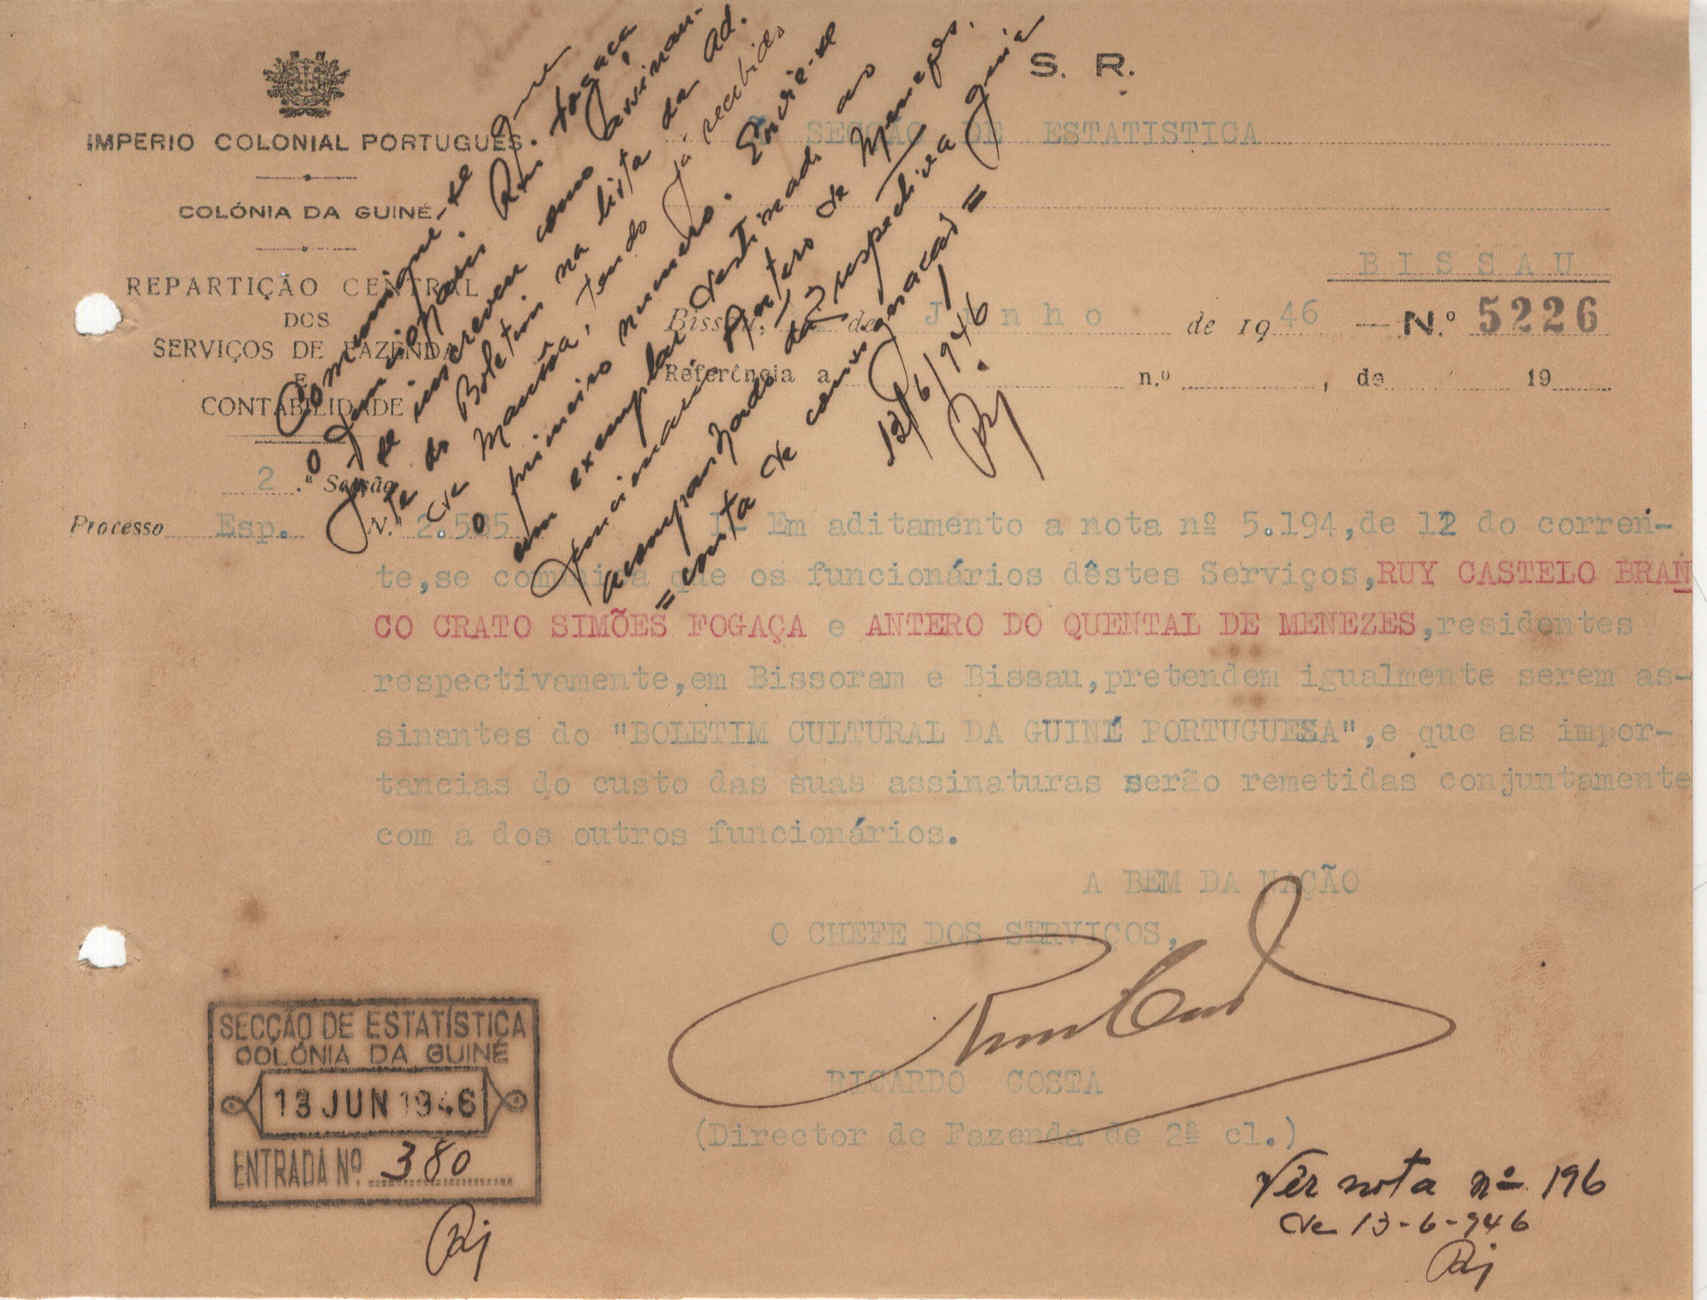 S. R.
IMPERIO COLONIAL PORTUGUÊS
SECÇÃO DE ESTATISTICA
COLÓNIA DA GUINÉ
BISSAU
REPARTIÇÃO CENTRAL
DOS
SERVIÇOS DE FAZENDA
E
CONTABILIDADE
Bissau, de Junho de 1946 — N.º 5226
Referência a n.º , de 19
2.ª Secção
Processo Esp. N. 2.505
I- Em aditamento a nota nº 5.194,de 12 do corren-
te,se comunica que os funcionários dêstes Serviços,RUY CASTELO BRAN
CO CRATO SIMÕES FOGAÇA e ANTERO DO QUENTAL DE MENEZES,residentes
respectivamente,em Bissoram e Bissau,pretendem igualmente serem as-
sinantes do "BOLETIM CULTURAL DA GUINÉ PORTUGUESA",e que as impor-
tancias do custo das suas assinaturas serão remetidas conjuntamente
com a dos outros funcionários.
A BEM DA NAÇÃO
O CHEFE DOS SERVIÇOS,
RICARDO COSTA
(Director de Fazenda de 2ª cl.)
Comunique-se que
o funcionário Rui Fogaça
já se inscreveu como assinan-
te do Boletim na lista da Ad.
de Mansôa, tendo já recebido
o primeiro numero. Envie-se
um exemplar destinado ao
funcionário Antero de Menezes.
acompanhado da respectiva guia
=conta de consignação=
13/6/946
SECÇÃO DE ESTATÍSTICA
COLÓNIA DA GUINÉ
13 JUN 1946
ENTRADA Nº 380
Vêr nota nº 196
de 13-6-946